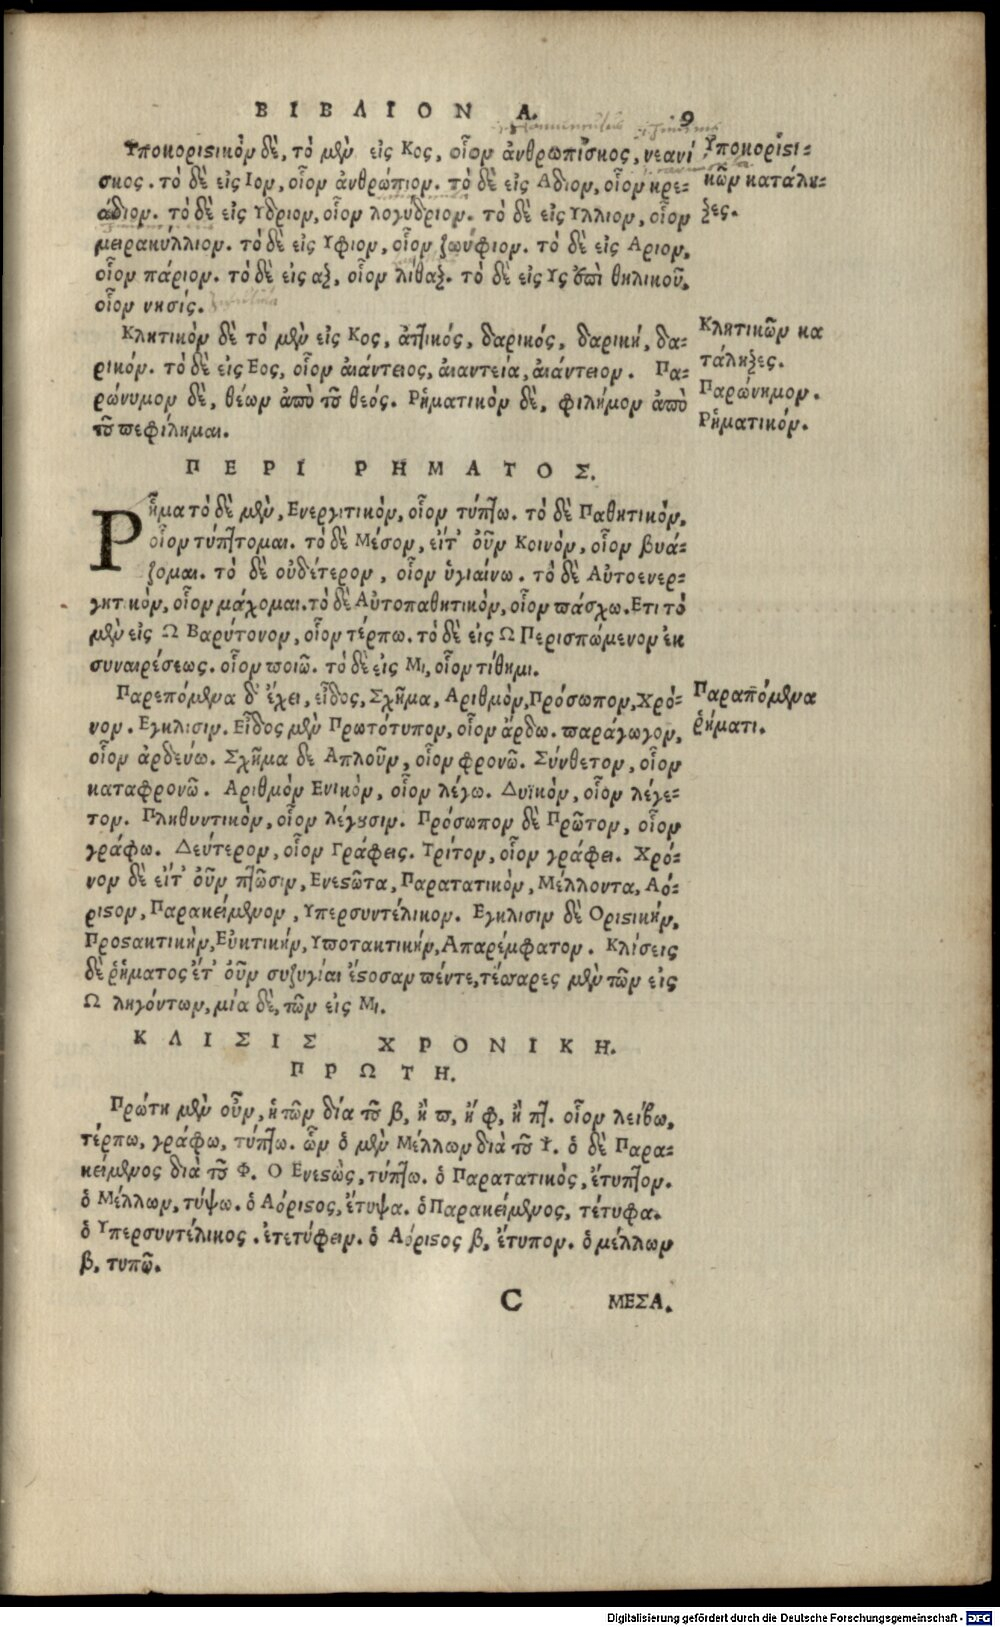 ΒΙΒΛΙΟΝ Α. 9
Ὑποκοριστικὸν δὲ, τὸ μὲν εἰς Κος, οἷον ἀνθρωπίσκος, νεανί
σκος. τὸ δὲ εἰς Ιον, οἷον ἀνθρώπιον. τὸ δὲ εἰς Αδιον, οἷον κρε-
άδιον. τὸ δὲ εἰς Υδριον, οἷον λογύδριον. τὸ δὲ εἰς Υλλιον, οἷον
μειρακύλλιον. τὸ δὲ εἰς Υφιον, οἷον ζωύφιον. τὸ δὲ εἰς Αριον,
οἷον πάριον. τὸ δὲ εἰς αξ, οἷον λίθαξ. τὸ δὲ εἰς Υς ἐπὶ θηλικοῦ,
οἷον νησίς.
Ὑποκορίστι-
κῶν κατάλη-
ξες.
Κλητικὸν δὲ τὸ μὲν εἰς Κος, ἀττικός, δαρικός, δαρική, δα-
ρικόν. τὸ δὲ εἰς Εος, οἷον αἰάντειος, αἰαντεία, αἰάντειον. Πα-
ρώνυμον δὲ, θέων ἀπὸ τοῦ θεός. Ῥηματικὸν δὲ, φιλήμον ἀπὸ
τοῦ πεφίλημαι.
Κλητικῶν κα
τάληξες.
Παρώνημον.
Ῥηματικόν.
ΠΕΡΙ ΡΗΜΑΤΟΣ.
Ρῆμα τὸ δὲ μὲν, Ενεργητικὸν, οἷον τύπτω. τὸ δὲ Παθητικὸν,
οἷον τύπτομαι. τὸ δὲ Μέσον, εἴτ' οὖν Κοινὸν, οἷον βιά-
ζομαι. τὸ δὲ οὐδέτερον, οἷον ὑγιαίνω. τὸ δὲ Αὐτοενερ-
γητικὸν, οἷον μάχομαι. τὸ δὲ Αὐτοπαθητικὸν, οἷον πάσχω. Ετι τὸ
μὲν εἰς Ω Βαρύτονον, οἷον τέρπω. τὸ δὲ εἰς Ω Περισπώμενον ἐκ
συναιρέσεως. οἷον ποιῶ. τὸ δὲ εἰς Μι, οἷον τίθημι.
Παρεπόμενα δ' ἔχει, εἶδος, Σχῆμα, Αριθμὸν, Πρόσωπον, Χρό-
νον. Εγκλισιν. Εἶδος μὲν Πρωτότυπον, οἷον ἄρδω. παράγωγον,
οἷον ἀρδεύω. Σχῆμα δὲ Απλοῦν, οἷον φρονῶ. Σύνθετον, οἷον
καταφρονῶ. Αριθμὸν Ενικὸν, οἷον λέγω. Δυϊκὸν, οἷον λέγε-
τον. Πληθυντικὸν, οἷον λέγουσιν. Πρόσωπον δὲ Πρῶτον, οἷον
γράφω. Δεύτερον, οἷον Γράφεις. Τρίτον, οἷον γράφει. Χρό-
νον δὲ εἴτ' οὖν πτῶσιν, Ενεστῶτα, Παρατατικὸν, Μέλλοντα, Αό-
ριστον, Παρακείμενον, Υπερσυντέλικον. Εγκλισιν δὲ Οριστικὴν,
Προστακτικὴν, Εὐκτικὴν, Υποτακτικὴν, Απαρέμφατον. Κλίσεις
δὲ ῥήματος ἔτ' οὖν συζυγίαι ἔστοσαν πέντε, τέσσαρες μὲν τῶν εἰς
Ω ληγόντων, μία δὲ, τῶν εἰς Μι.
Παραπόμενα
ῥήματι.
ΚΛΙΣΙΣ ΧΡΟΝΙΚΗ.
ΠΡΩΤΗ.
Πρώτη μὲν οὖν, ἡ τῶν διά τοῦ β, ἢ π, ἤ φ, ἢ πτ. οἷον λείβω,
τέρπω, γράφω, τύπτω. ὧν ὁ μὲν Μέλλων διὰ τοῦ Ψ. ὁ δὲ Παρα-
κείμενος διὰ τοῦ Φ. Ο Ενεστὼς, τύπτω. ὁ Παρατατικὸς, ἔτυπτον.
ὁ Μέλλων, τύψω. ὁ Αόριστος, ἔτυψα. ὁ Παρακείμενος, τέτυφα.
ὁ Υπερσυντέλικος. ἐτετύφειν. ὁ Αόριστος β, ἔτυπον. ὁ μέλλων
β, τυπῶ.
C ΜΕΣΑ.
Digitalisierung gefördert durch die Deutsche Forschungsgemeinschaft - DFG